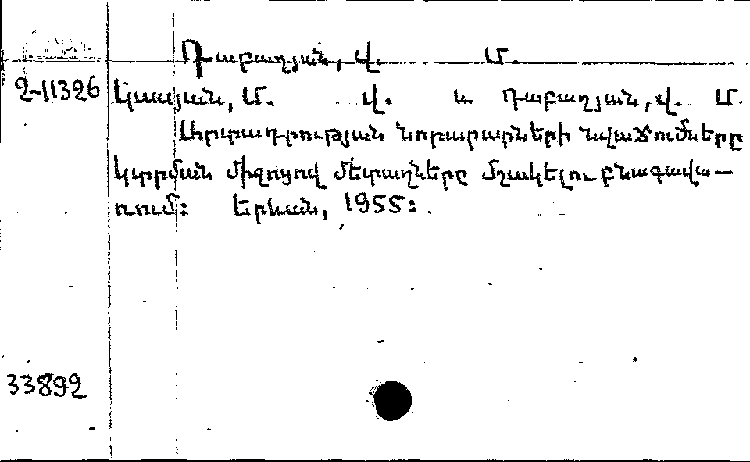 Դաբաղյան, Վ. Մ.
2-11326 Կասյան, Մ. Վ. և Դաբաղյան, Վ. Մ.
Արտադրության նորարարների նվաճումները
կտրման միջոցով մետաղները մշակելու բնագավա-
ռում: Երևան, 1955:
33892